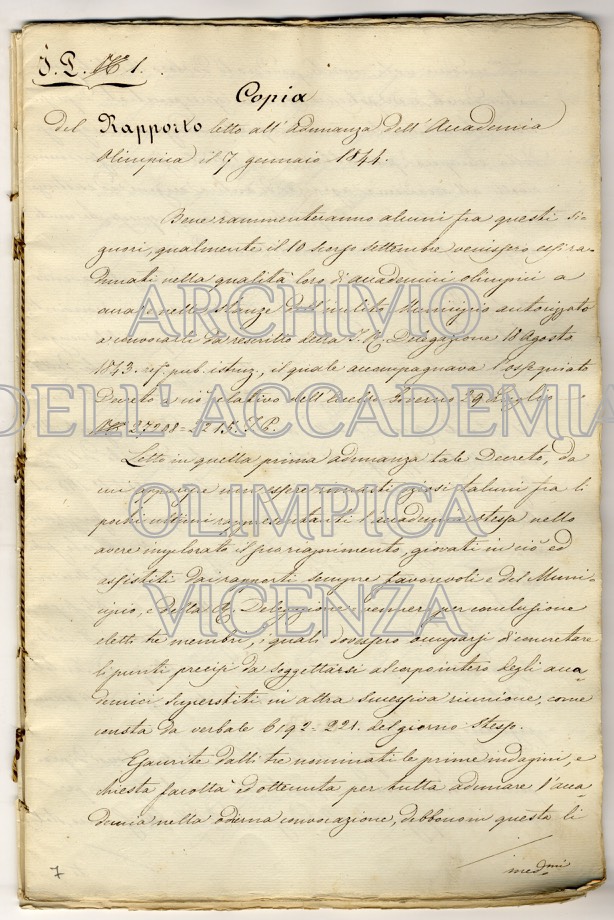 I. P. N. 1.
Copia
del Rapporto letto all'Adunanza dell'Accademia
Olimpica il 7 gennaio 1844.
Bene rammenteranno alcuni fra questi Si-
gnori, qualmente il 10 scorso settembre venissero essi ra-
dunati nella qualità loro di accademici olimpici a
nelle stanze dell'inclito Municipio autorizzato
a convocarli da rescritto della I. R. Delegazione 18 Agosto
1843. ref. pub. istruz., il quale accompagnava l'ossequiato
Decreto a ciò relativo dell'eccelso Governo 29 Luglio
N. 27288-2215. I. P.
Letto in quella prima adunanza tale Decreto, da
cui non essere rimasti oziosi taluni fra li
pochi ultimi rappresentanti l'accademia stessa nello
avere implorato il riaprimento, giovati in ciò ed
assistiti dai rapporti sempre favorevoli e del Muni-
cipio, e della R. Delegazione, vennero per conclusione
eletti tre membri, i quali dovessero occuparsi di concretare
li punti precisi da soggettarsi al corpo intero degli acca-
demici superstiti in altra successiva riunione, come
consta da verbale 692-221. del giorno stesso.
Esaurite dalli tre nominati le prime indagini, e
chiesta facoltà ed ottenuta per tutta adunare l'acca-
demia nella odierna convocazione, debbono in questa li
med.mi
7
ARCHIVIO
DELL'ACCADEMIA
OLIMPICA
VICENZA